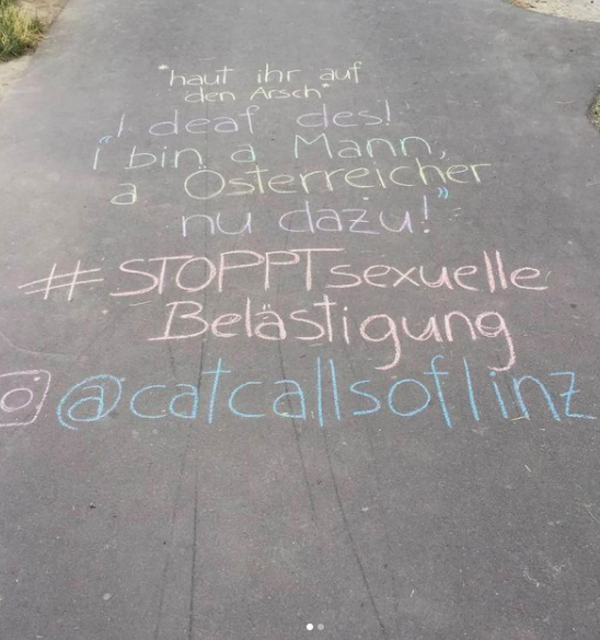 *haut ihr auf
den Arsch*
"I deaf des!
i bin a Mann,
a Österreicher
nu dazu!"
#STOPPTsexuelle
Belästigung
@catcallsoflinz